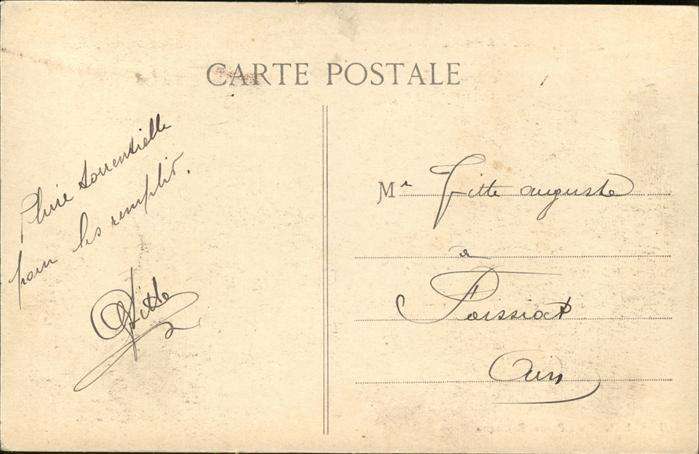 CARTE POSTALE
Pluie torrentielle
pour les remplir.
Fitte
Mr Fitte auguste
a
Foissiat
Ain